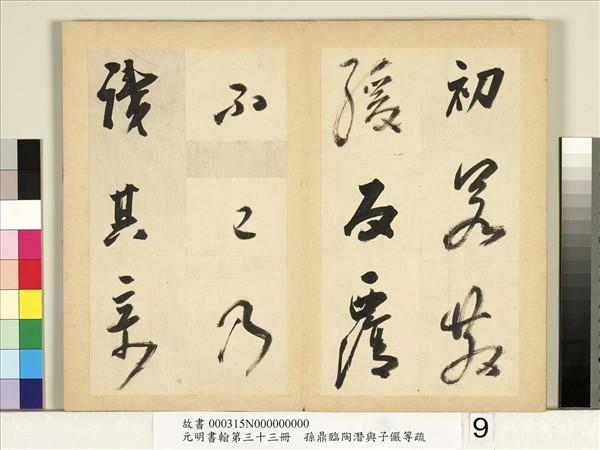 初若散
緩反覆
不已乃
識其奇
故書 000315N000000000
元明書翰第三十三冊 孫鼎臨陶潛與子儼等疏
9